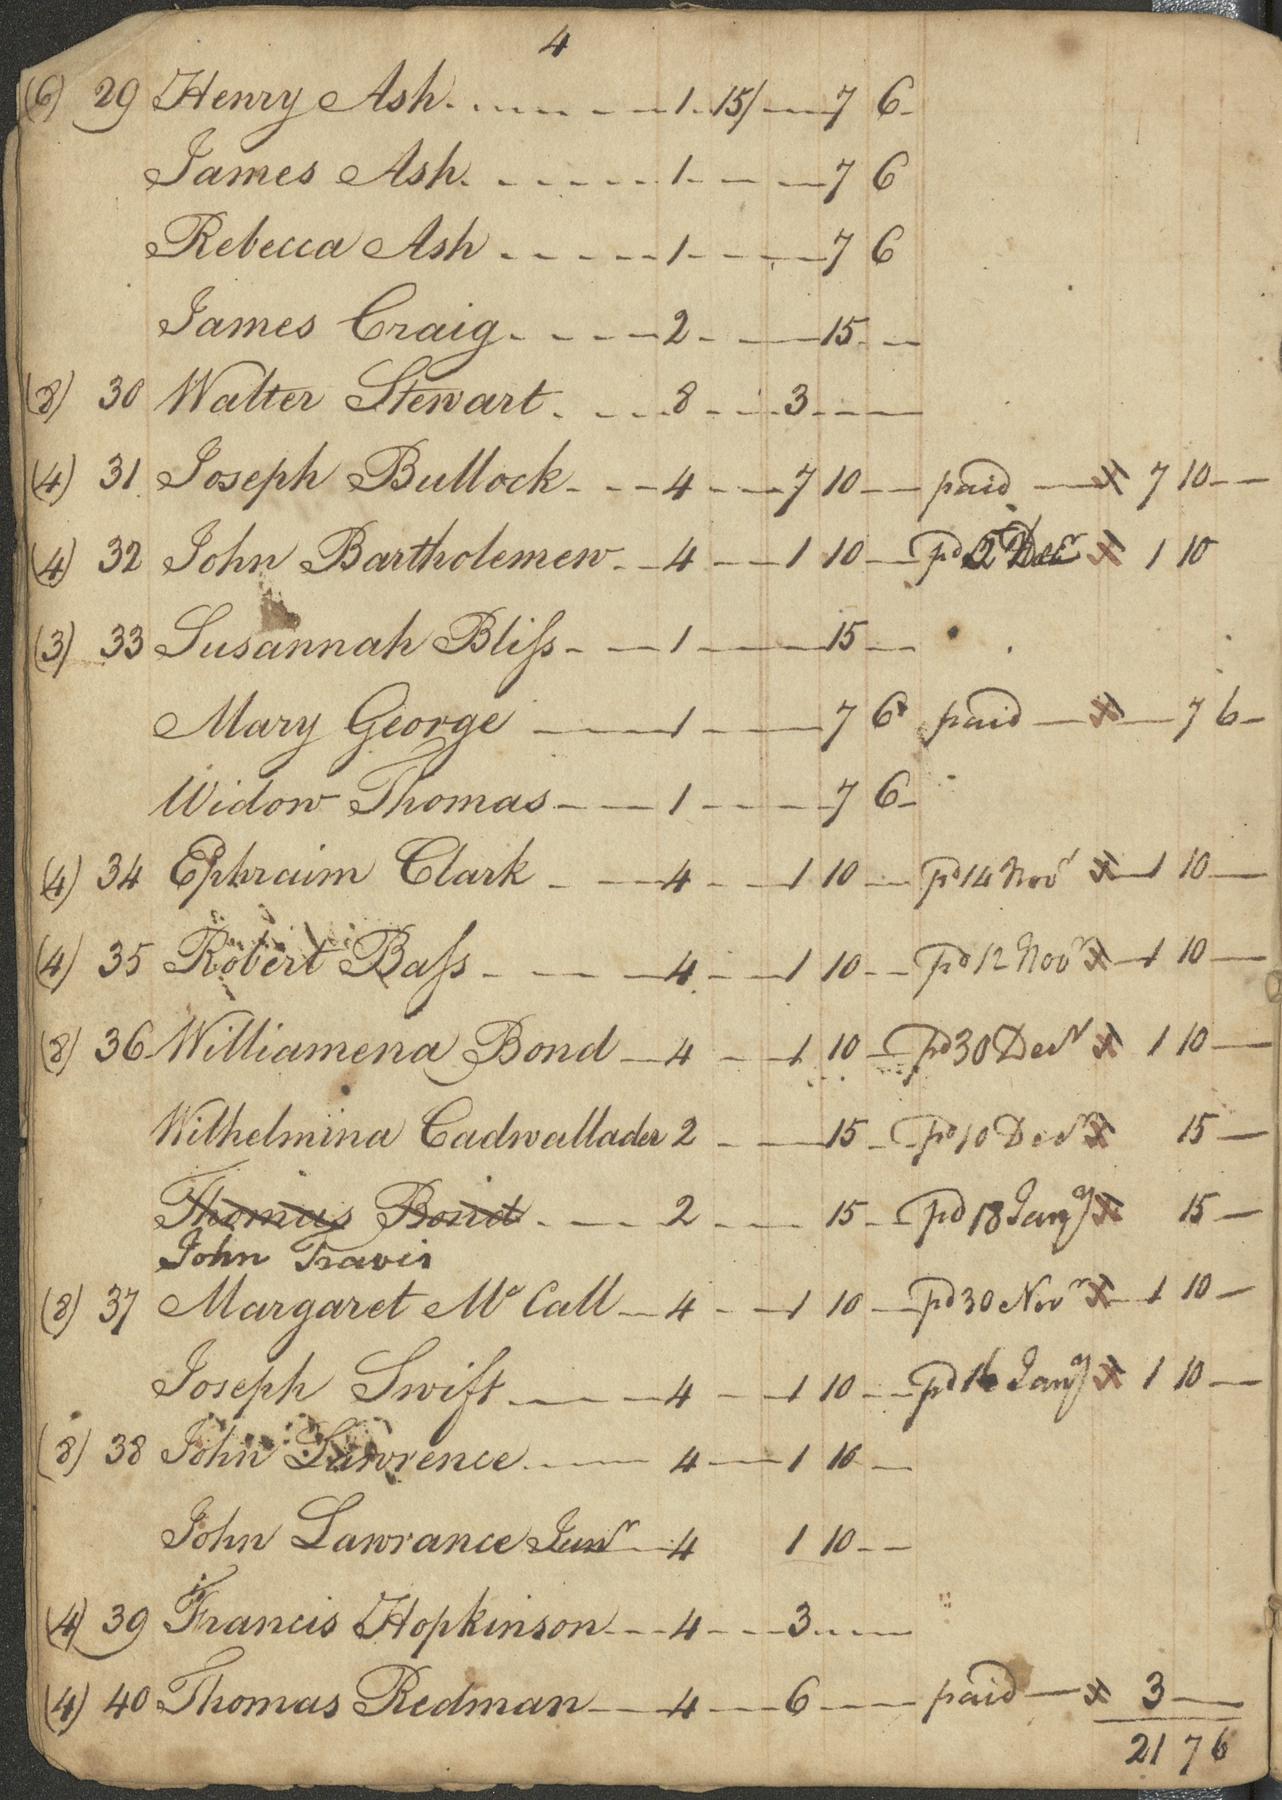 4
(6) 29 Henry Ash 1 15/ 7 6
James Ash 1 7 6
Rebecca Ash 1 7 6
James Craig 2 15
(8) 30 Walter Stewart 8 3
(4) 31 Joseph Bullock 4 7 10 paid 7 10
(4) 32 John Bartholemew 4 1 10 pd 2 Decr 1 10
(3) 33 Susannah Bliſs 1 15
Mary George 1 7 6 paid 7 6
Widow Thomas 1 7 6
(4) 34 Ephraim Clark 4 1 10 pd 14 Novr 1 10
(4) 35 Robert Baſs 4 1 10 pd 12 Novr 1 10
(8) 36 Williamena Bond 4 1 10 pd 30 Decr 1 10
Wilhelmina Cadwallader 2 15 pd 10 Decr 15
Thomas Bond 2 15 pd 18 Jany 15
John Travis
(8) 37 Margaret Mc Call 4 1 10 pd 30 Novr 1 10
Joseph Swift 4 1 10 pd 16 Jany 1 10
(8) 38 John Lawrence 4 1 10
John Lawrance Junr 4 1 10
(4) 39 Francis Hopkinson 4 3
(4) 40 Thomas Redman 4 6 paid 3
21 7 6